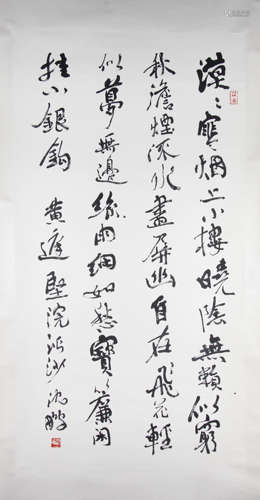 漠〻寒烟上小樓曉陰無賴似窮
秋澹煙流水畫屏幽自在飛花輕
似夢無邊絲雨細如愁寶簾閑
挂小銀鉤 黃庭堅浣溪沙 沈鵬